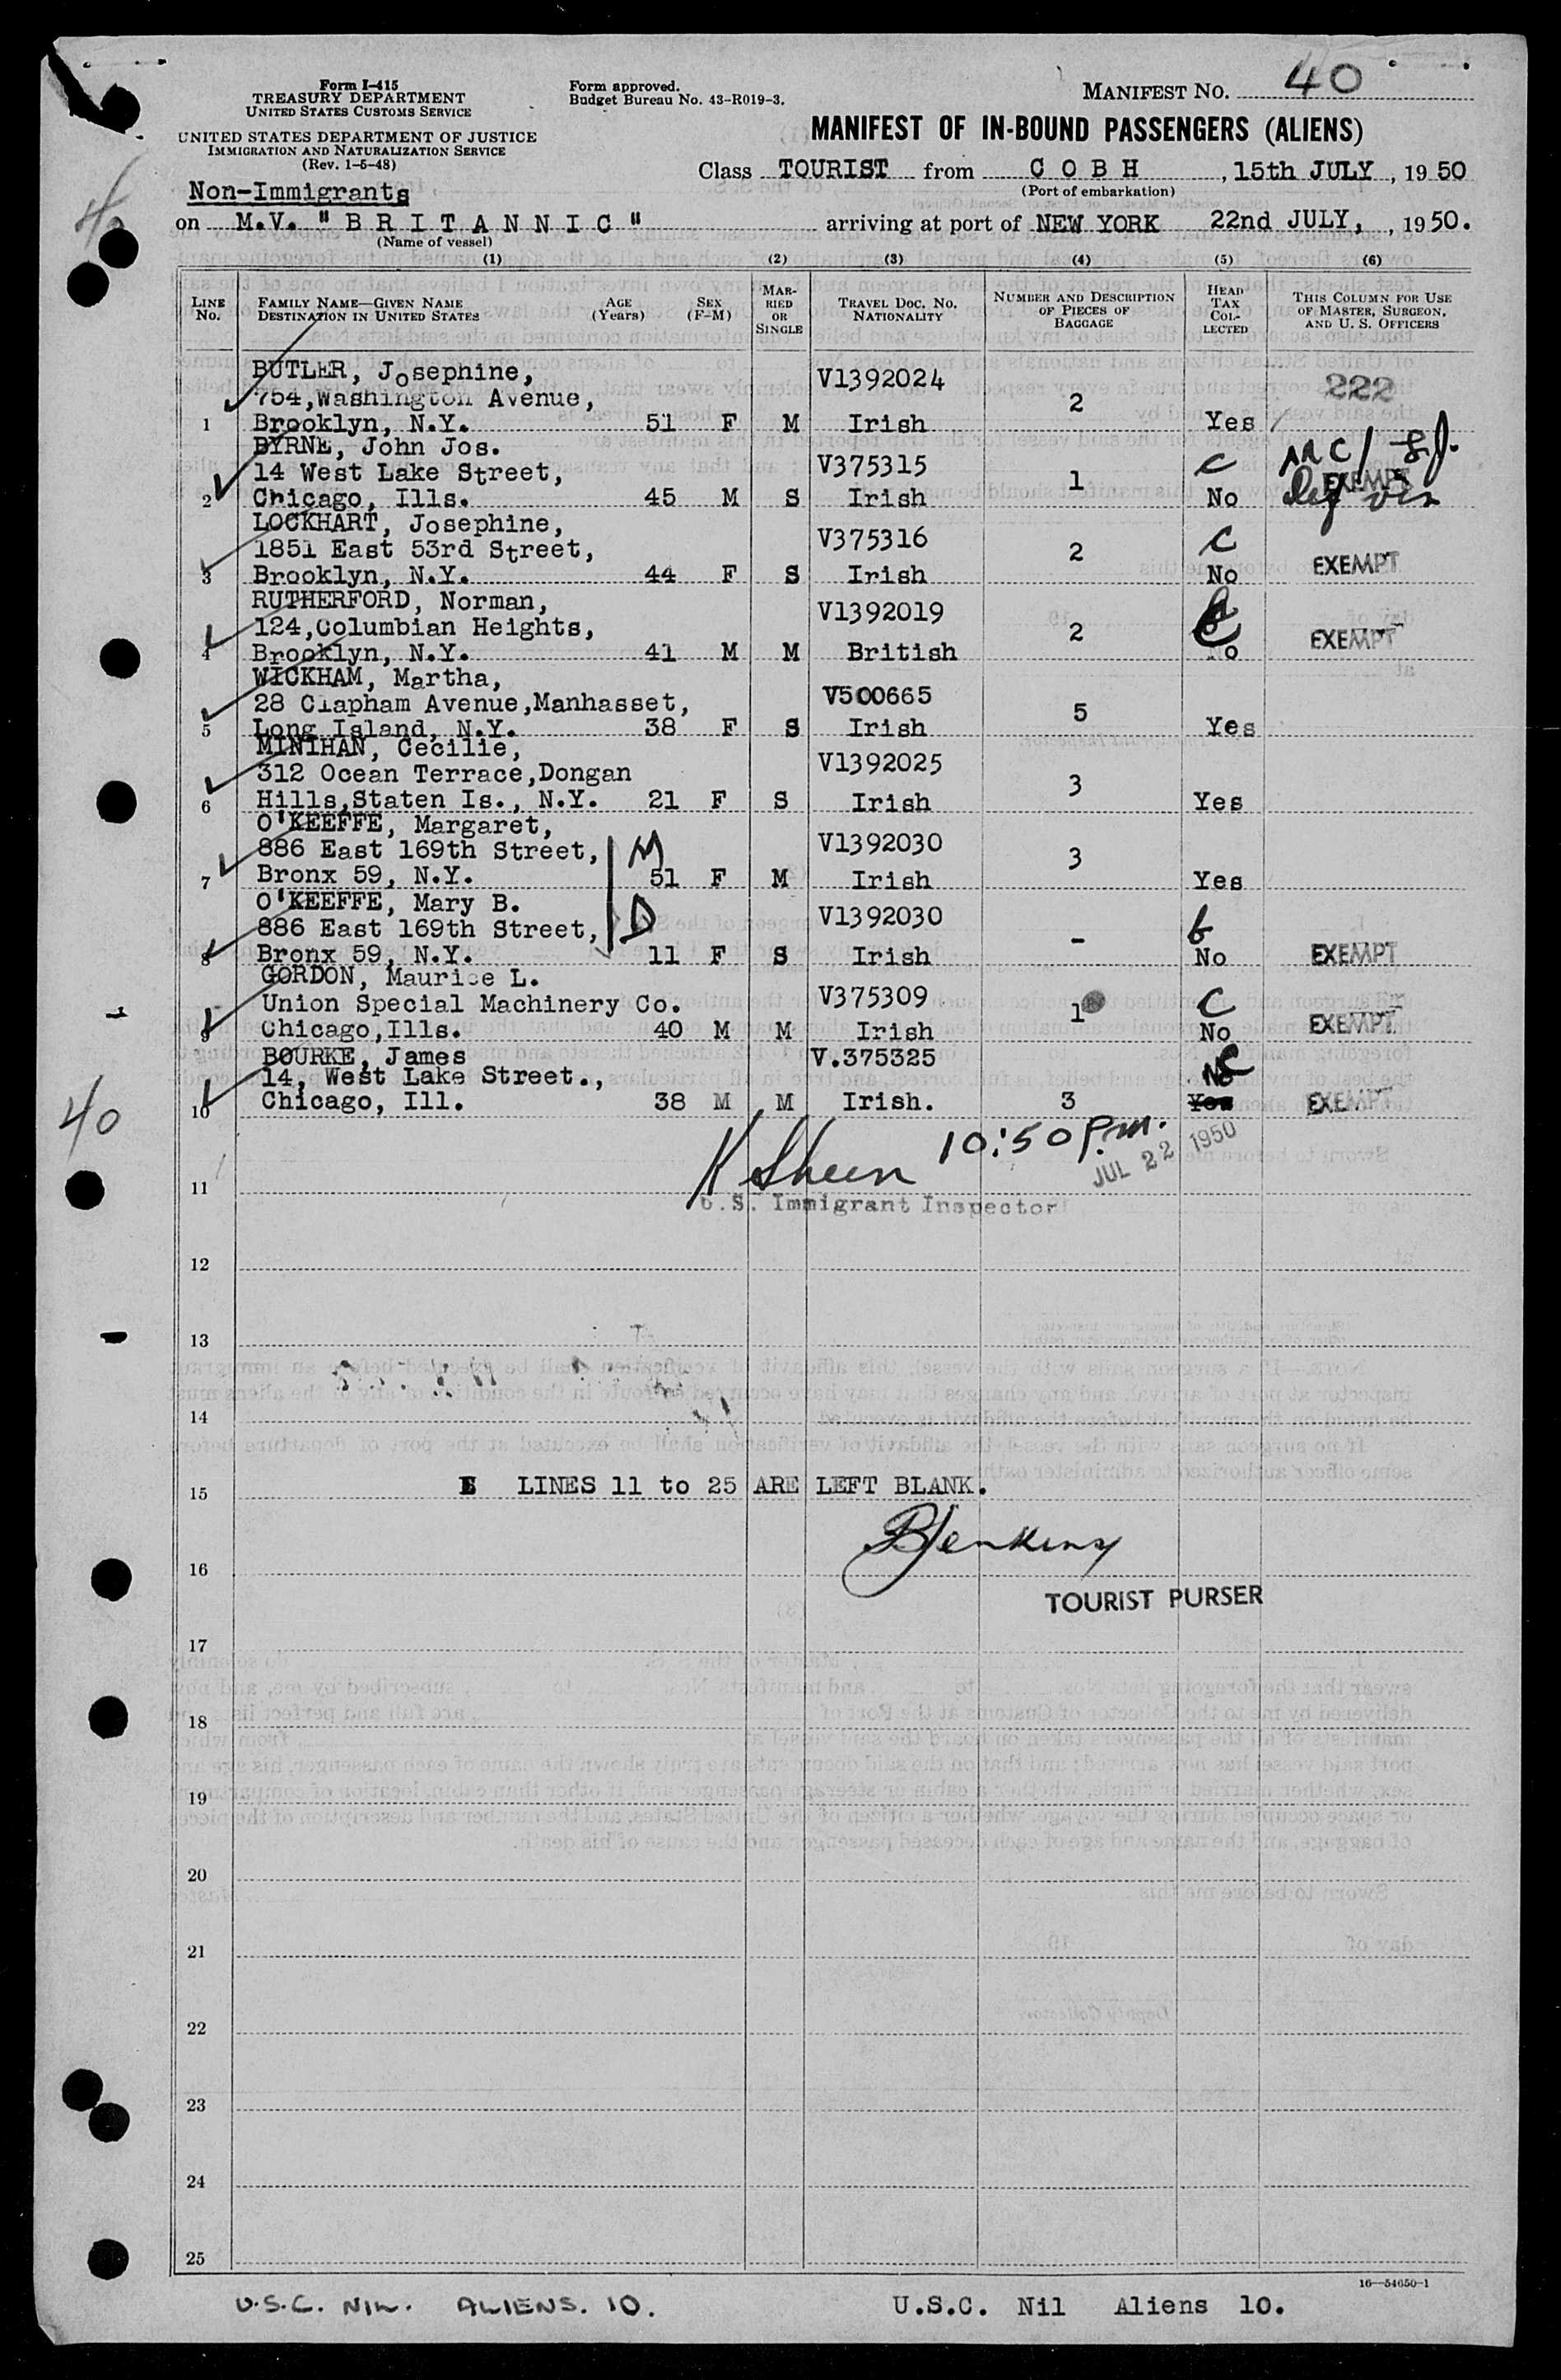 Form I-415
TREASURY DEPARTMENT
UNITED STATES CUSTOMS SERVICE
UNITED STATES DEPARTMENT OF JUSTICE
IMMIGRATION AND NATURALIZATION SERVICE
(Rev. 1-5-48)
Form approved.
Budget Bureau No. 43-R019-3.
MANIFEST NO. 40
MANIFEST OF IN-BOUND PASSENGERS (ALIENS)
Class TOURIST from C O B H , 15th JULY , 19 50
(Port of embarkation)
Non-Immigrants
on M.V. "B R I T A N N I C" arriving at port of NEW YORK 22nd JULY, , 19 50.
(Name of vessel)
(1) (2) (3) (4) (5) (6)
LINE No. FAMILY NAME—GIVEN NAME DESTINATION IN UNITED STATES AGE (Years) SEX (F-M) MARRIED OR SINGLE TRAVEL DOC. NO. NATIONALITY NUMBER AND DESCRIPTION OF PIECES OF BAGGAGE HEAD TAX COLLECTED THIS COLUMN FOR USE OF MASTER, SURGEON, AND U. S. OFFICERS
BUTLER, Josephine, V1392024 222
754,Washington Avenue, 2
1 Brooklyn, N.Y. 51 F M Irish Yes
BYRNE, John Jos.
14 West Lake Street, V375315 1 c EXEMPT
2 Chicago, Ills. 45 M S Irish No
LOCKHART, Josephine,
1851 East 53rd Street, V375316 2 c EXEMPT
3 Brooklyn, N.Y. 44 F S Irish No
RUTHERFORD, Norman, V1392019
124,Columbian Heights, 2 EXEMPT
4 Brooklyn, N.Y. 41 M M British No
WICKHAM, Martha,
28 Clapham Avenue,Manhasset, V500665 5
5 Long Island, N.Y. 38 F S Irish Yes
MINIHAN, Cecilie,
312 Ocean Terrace,Dongan V1392025 3
6 Hills,Staten Is., N.Y. 21 F S Irish Yes
O'KEEFFE, Margaret,
886 East 169th Street, M V1392030 3
7 Bronx 59, N.Y. 51 F M Irish Yes
O'KEEFFE, Mary B.
886 East 169th Street, D V1392030 - b
8 Bronx 59, N.Y. 11 F S Irish No EXEMPT
GORDON, Maurice L.
Union Special Machinery Co. V375309 1 C
9 Chicago,Ills. 40 M M Irish No EXEMPT
BOURKE, James V.375325
14, West Lake Street., No
10 Chicago, Ill. 38 M M Irish. 3 Yes EXEMPT
40
K Sheen 10:50 P.m.
JUL 22 1950
11
U.S. Immigrant Inspector
12
13
14
15 LINES 11 to 25 ARE LEFT BLANK.
BJenkins
16
TOURIST PURSER
17
18
19
20
21
22
23
24
25
16—54650-1
U.S.C. NIL. ALIENS. 10. U.S.C. Nil Aliens 10.